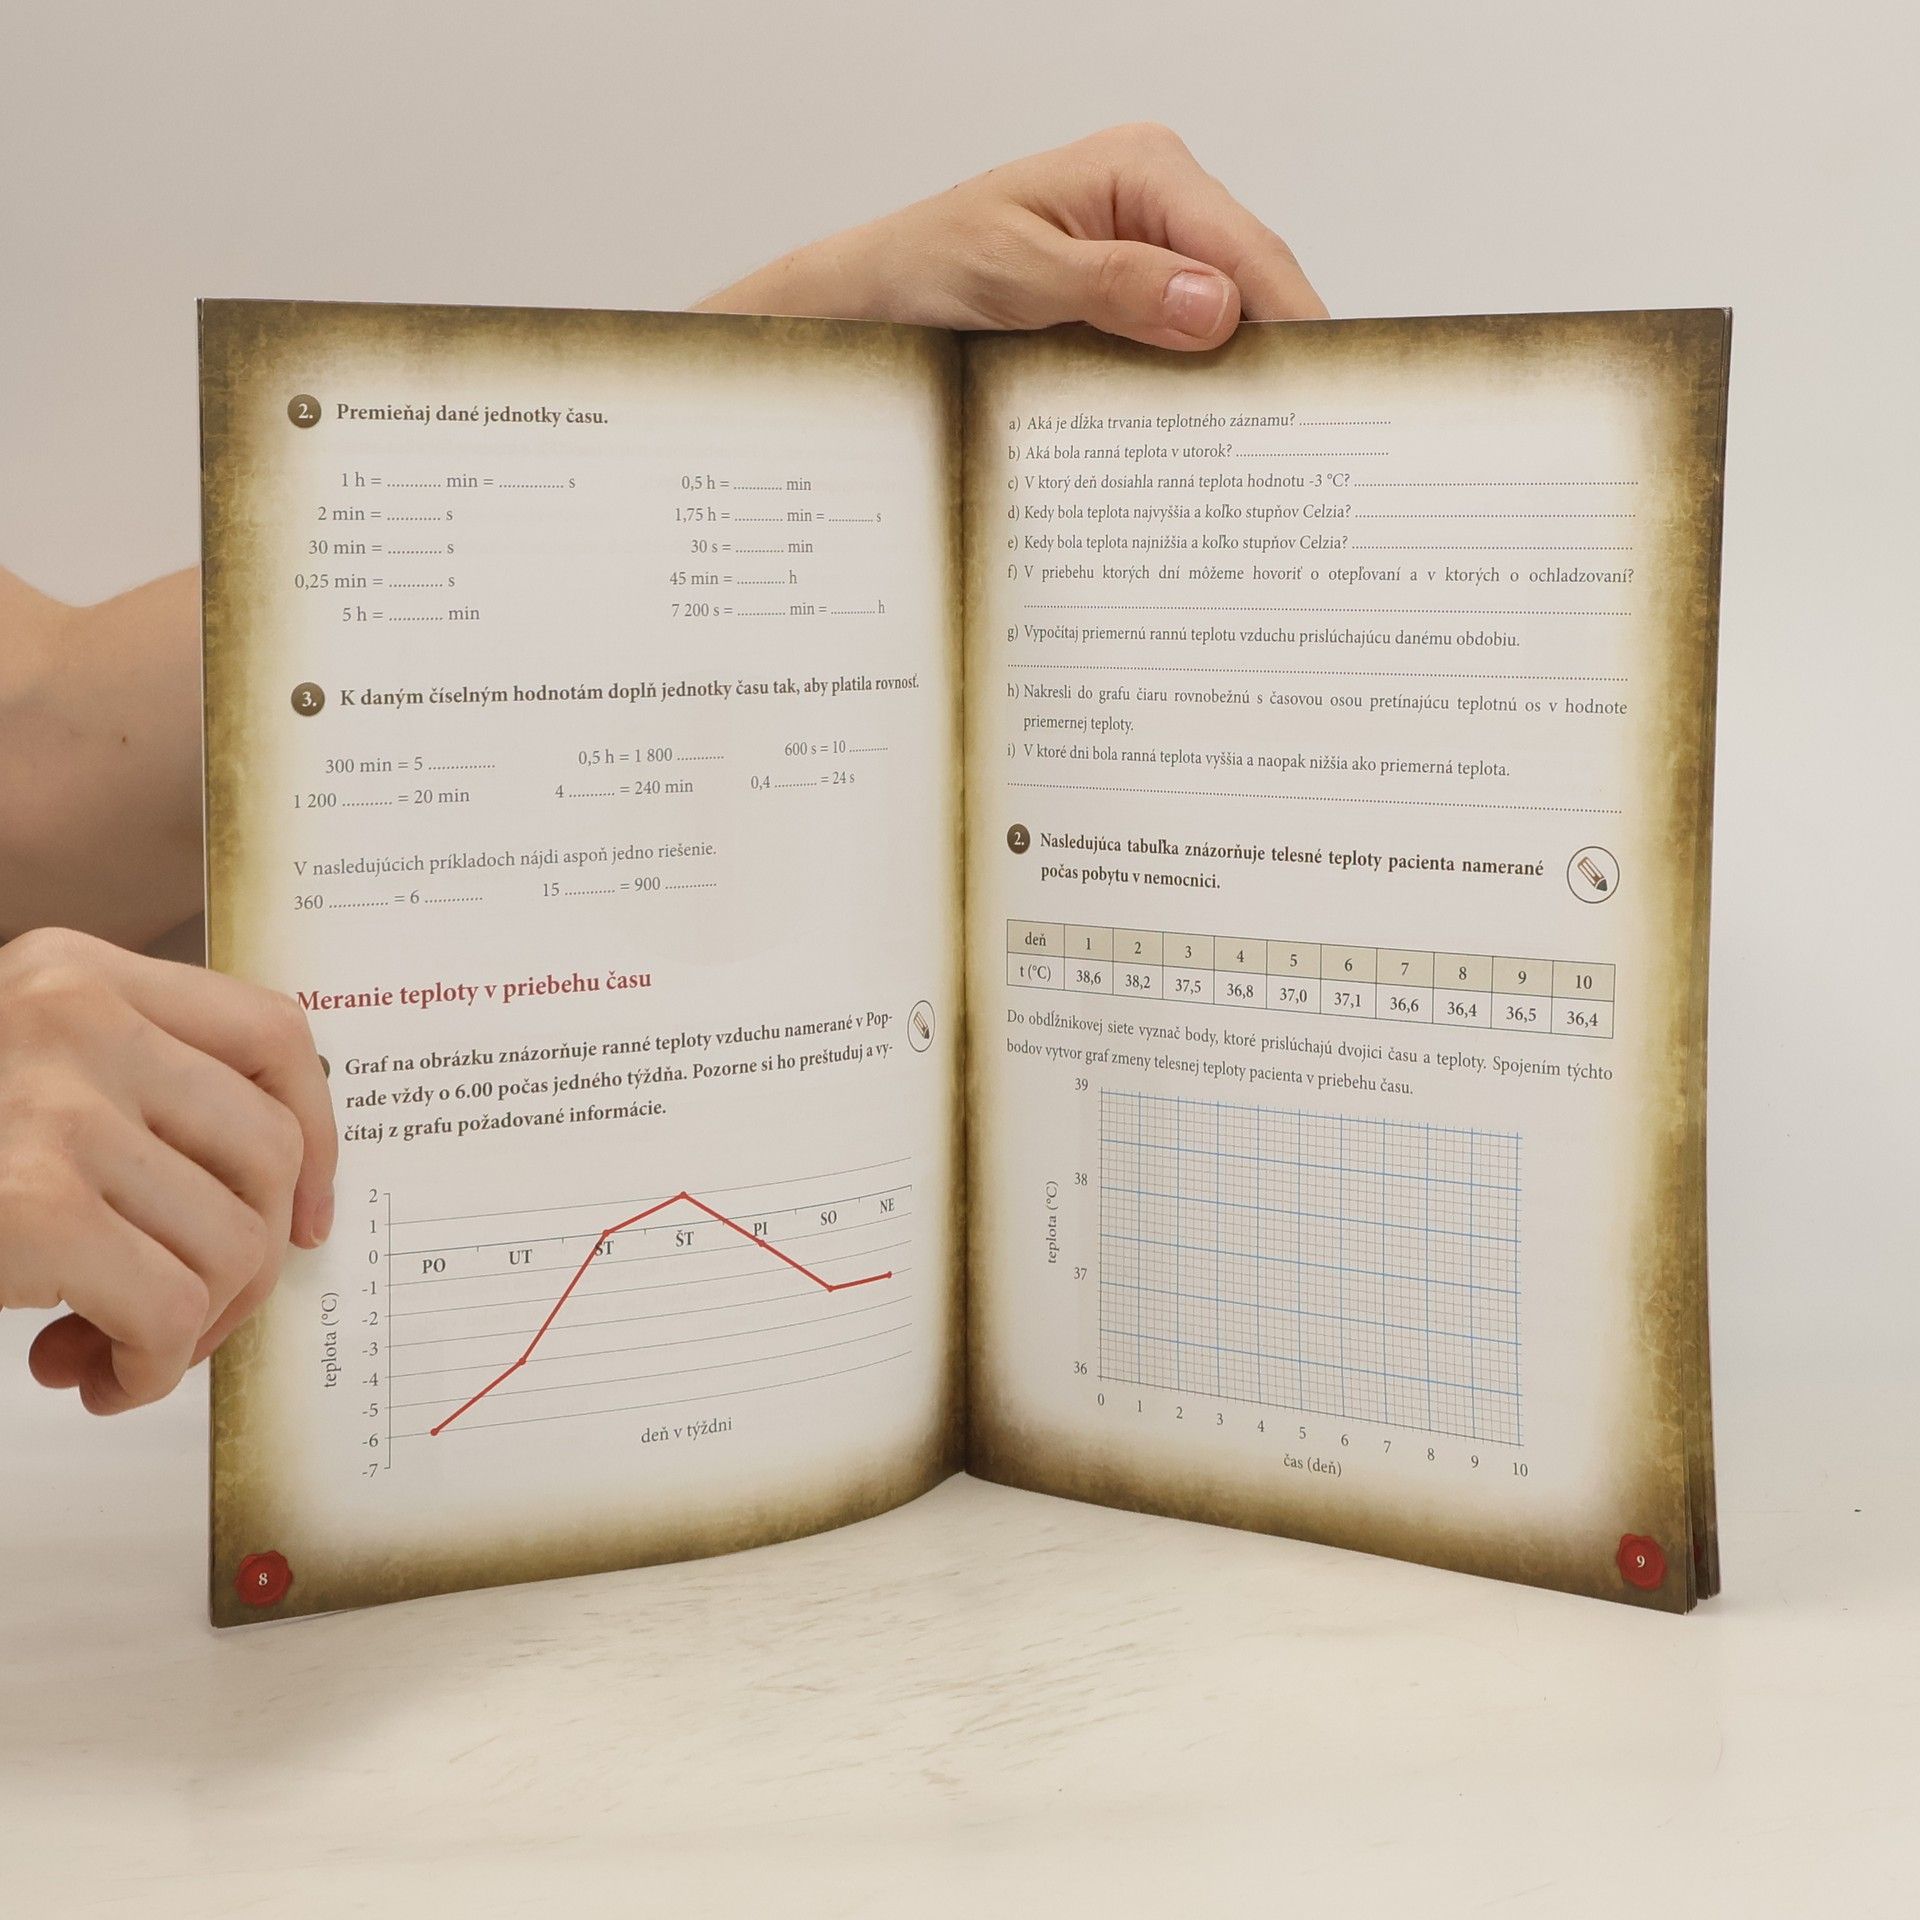 2. Premieňaj dané jednotky času.
1 h = ............ min = .............. s
0,5 h = ............ min
2 min = ............ s
1,75 h = ............ min = ............ s
30 min = ............ s
30 s = ............ min
0,25 min = ............ s
45 min = ............ h
5 h = ............ min
7 200 s = ............ min = ............ h
3. K daným číselným hodnotám doplň jednotky času tak, aby platila rovnosť.
300 min = 5 ..............
0,5 h = 1 800 ............
600 s = 10 ............
1 200 ........... = 20 min
4 ........... = 240 min
0,4 ............ = 24 s
V nasledujúcich príkladoch nájdi aspoň jedno riešenie.
360 ............. = 6 .............
15 ............ = 900 .............
Meranie teploty v priebehu času
Graf na obrázku znázorňuje ranné teploty vzduchu namerané v Pop-
rade vždy o 6.00 počas jedného týždňa. Pozorne si ho preštuduj a vy-
čítaj z grafu požadované informácie.
2
1
0
-1
-2
-3
-4
-5
-6
-7
teplota (°C)
PO
UT
ST
ŠT
PI
SO
NE
deň v týždni
8
a) Aká je dĺžka trvania teplotného záznamu? ........................
b) Aká bola ranná teplota v utorok? ........................................
c) V ktorý deň dosiahla ranná teplota hodnotu -3 °C? ........................................
d) Kedy bola teplota najvyššia a koľko stupňov Celzia? ........................................
e) Kedy bola teplota najnižšia a koľko stupňov Celzia? ........................................
f) V priebehu ktorých dní môžeme hovoriť o otepľovaní a v ktorých o ochladzovaní?
........................................
g) Vypočítaj priemernú rannú teplotu vzduchu prislúchajúcu danému obdobiu.
........................................
h) Nakresli do grafu čiaru rovnobežnú s časovou osou pretínajúcu teplotnú os v hodnote
priemernej teploty.
i) V ktoré dni bola ranná teplota vyššia a naopak nižšia ako priemerná teplota.
........................................
2. Nasledujúca tabuľka znázorňuje telesné teploty pacienta namerané
počas pobytu v nemocnici.
deň 1 2 3 4 5 6 7 8 9 10
t (°C) 38,6 38,2 37,5 36,8 37,0 37,1 36,6 36,4 36,5 36,4
Do obdĺžnikovej siete vyznač body, ktoré prislúchajú dvojici času a teploty. Spojením týchto
bodov vytvor graf zmeny telesnej teploty pacienta v priebehu času.
39
38
37
36
teplota (°C)
0 1 2 3 4 5 6 7 8 9 10
čas (deň)
9